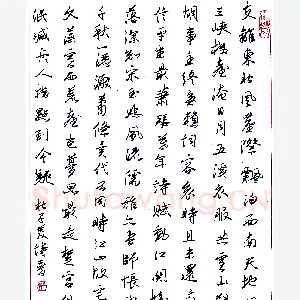 支離東北風塵際飄泊西南天地
三峽樓臺淹日月五溪衣服共雲山
胡事主終無賴詞客哀時且未還
信平生最蕭瑟暮年詩賦動江關
落深知宋玉悲風流儒雅亦吾師悵
千秋一灑淚蕭條異代不同時江山故宅空
文藻雲雨荒臺豈夢思最是楚宮
泯滅舟人指點到今疑 杜子美詩
Shufawang.CN